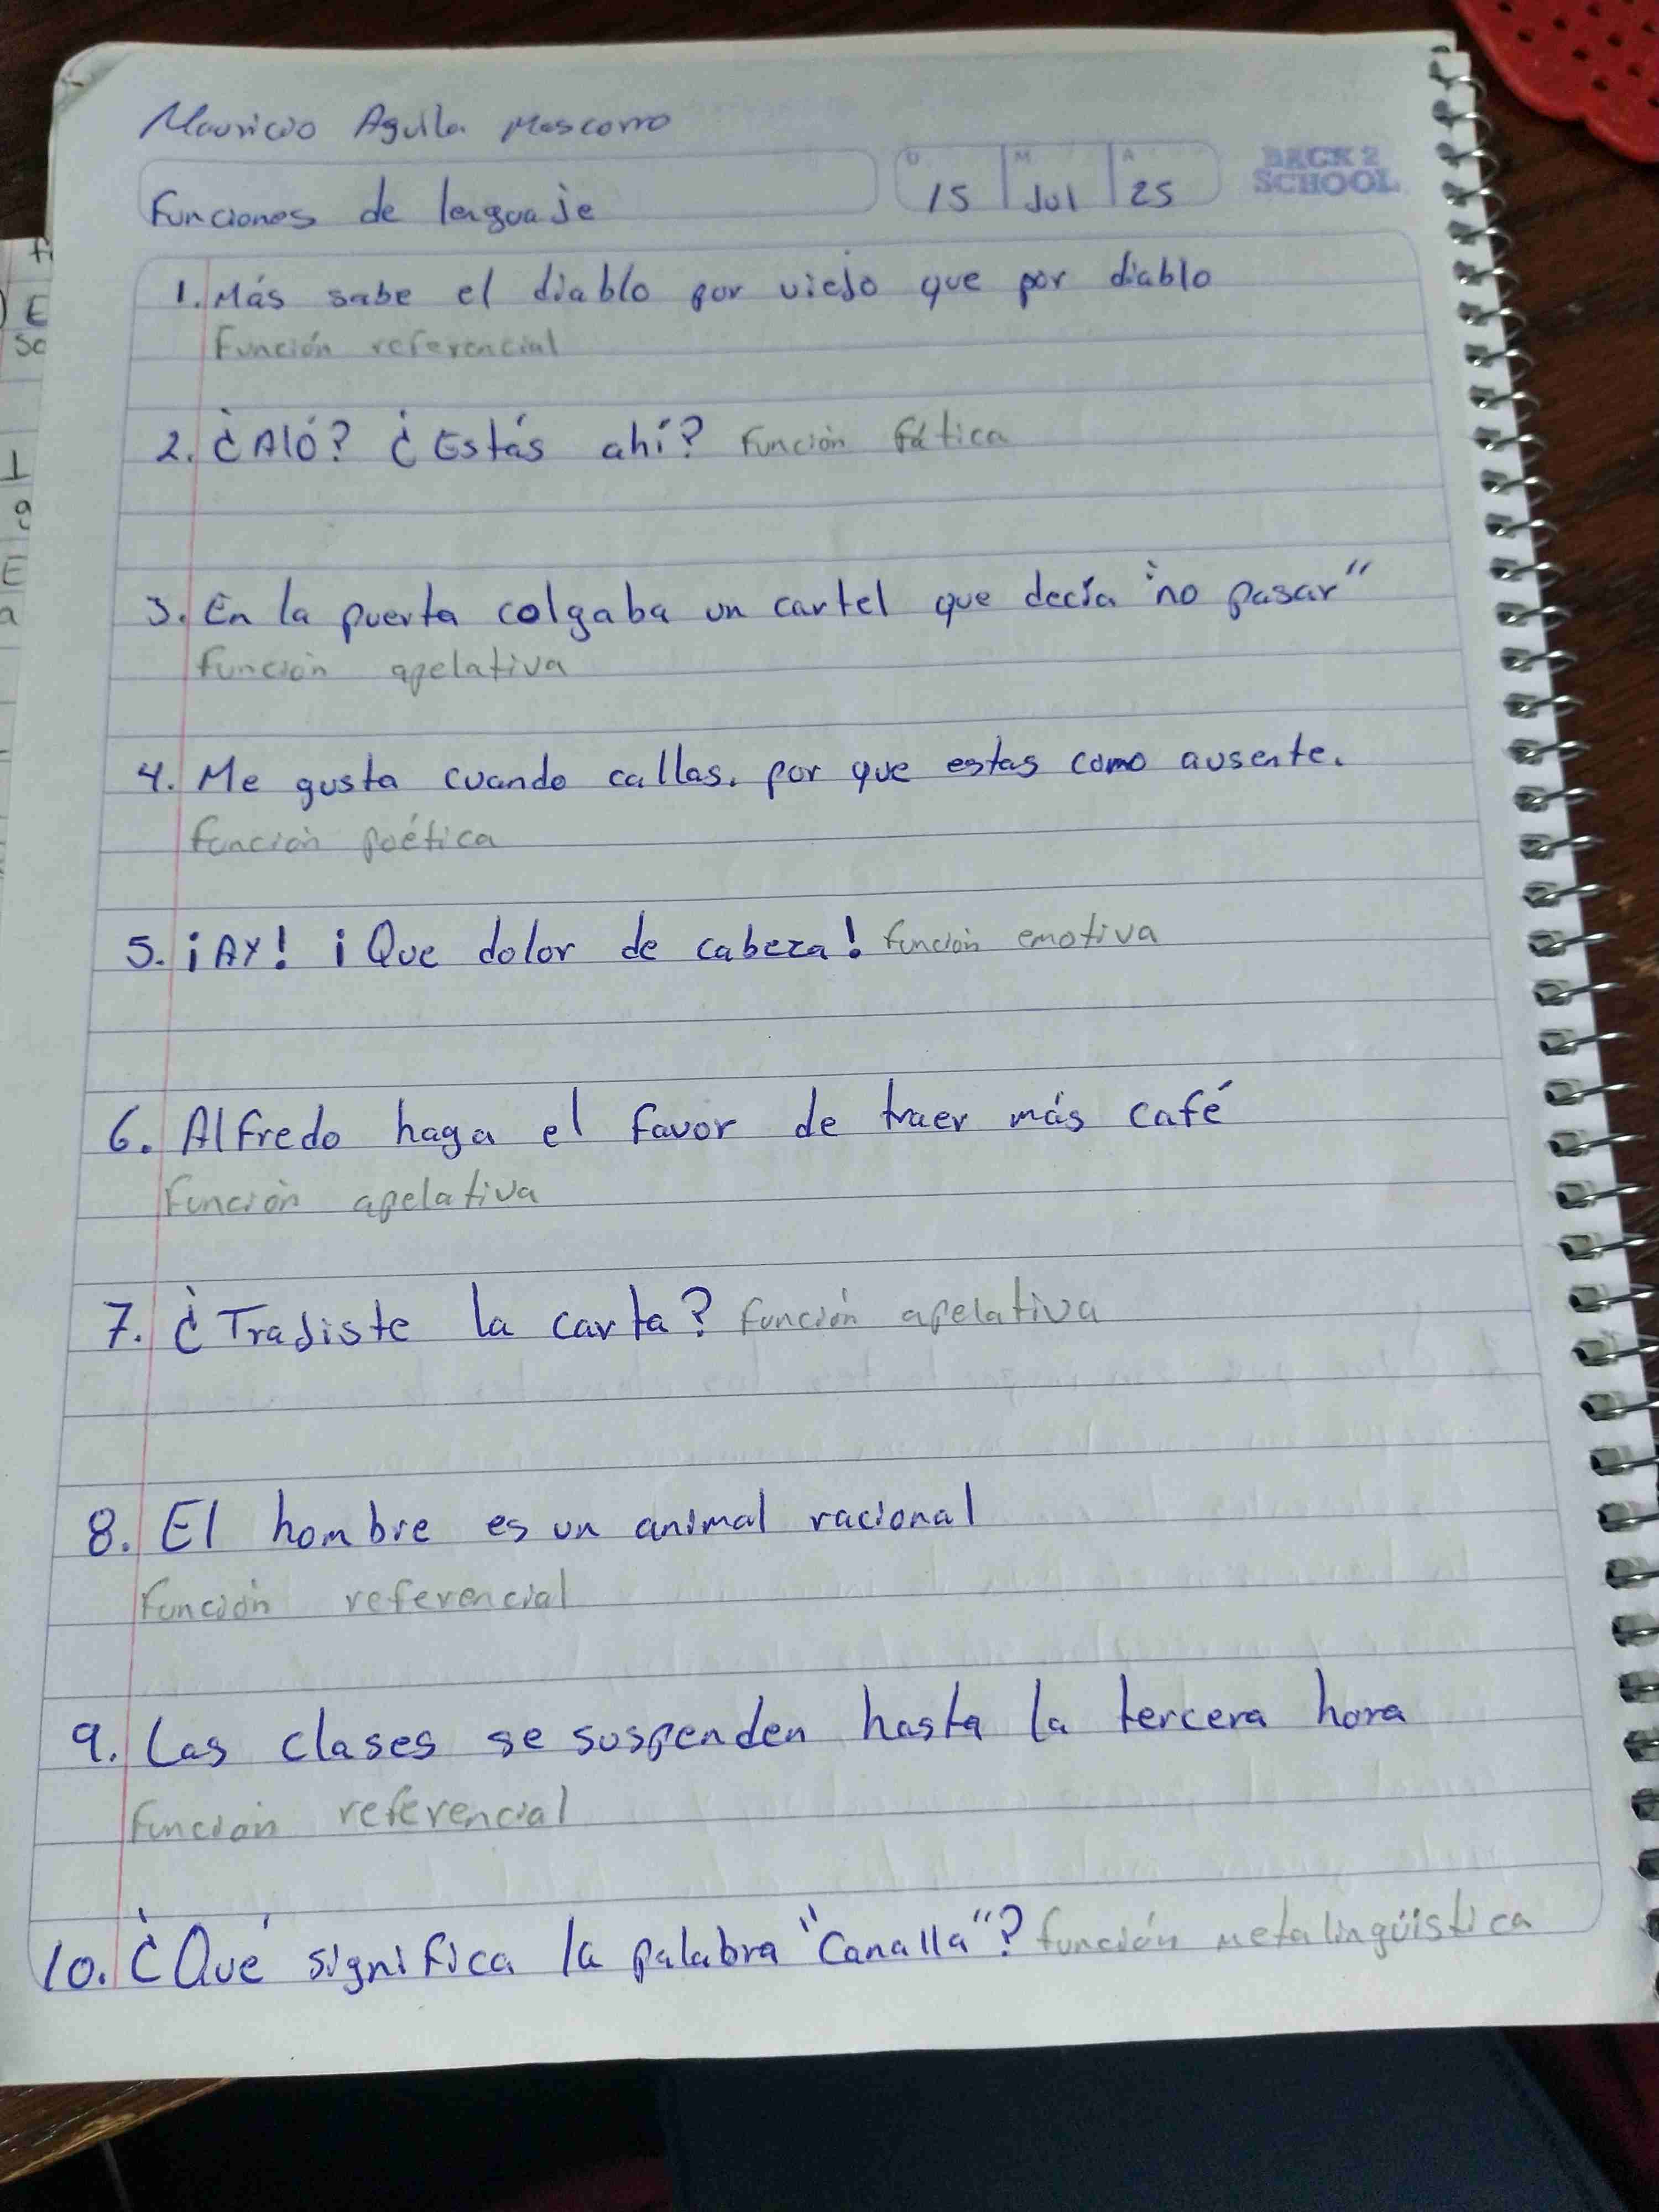 Mauricio Aguila Mascorro
D M A
BACK 2
SCHOOL
Funciones de lenguaje
15 Jul 25
1. Más sabe el diablo por viejo que por diablo
Función referencial
2. ¿Aló? ¿Estás ahí? Función fática
3. En la puerta colgaba un cartel que decía "no pasar"
función apelativa
4. Me gusta cuando callas. por que estas como ausente.
función poética
5. ¡AY! ¡Que dolor de cabeza! función emotiva
6. Alfredo haga el favor de traer más café
Función apelativa
7. ¿Trajiste la carta? función apelativa
8. El hombre es un animal racional
función referencial
9. Las clases se suspenden hasta la tercera hora
función referencial
10. ¿Qué significa la palabra "Canalla"? función metalingüistica